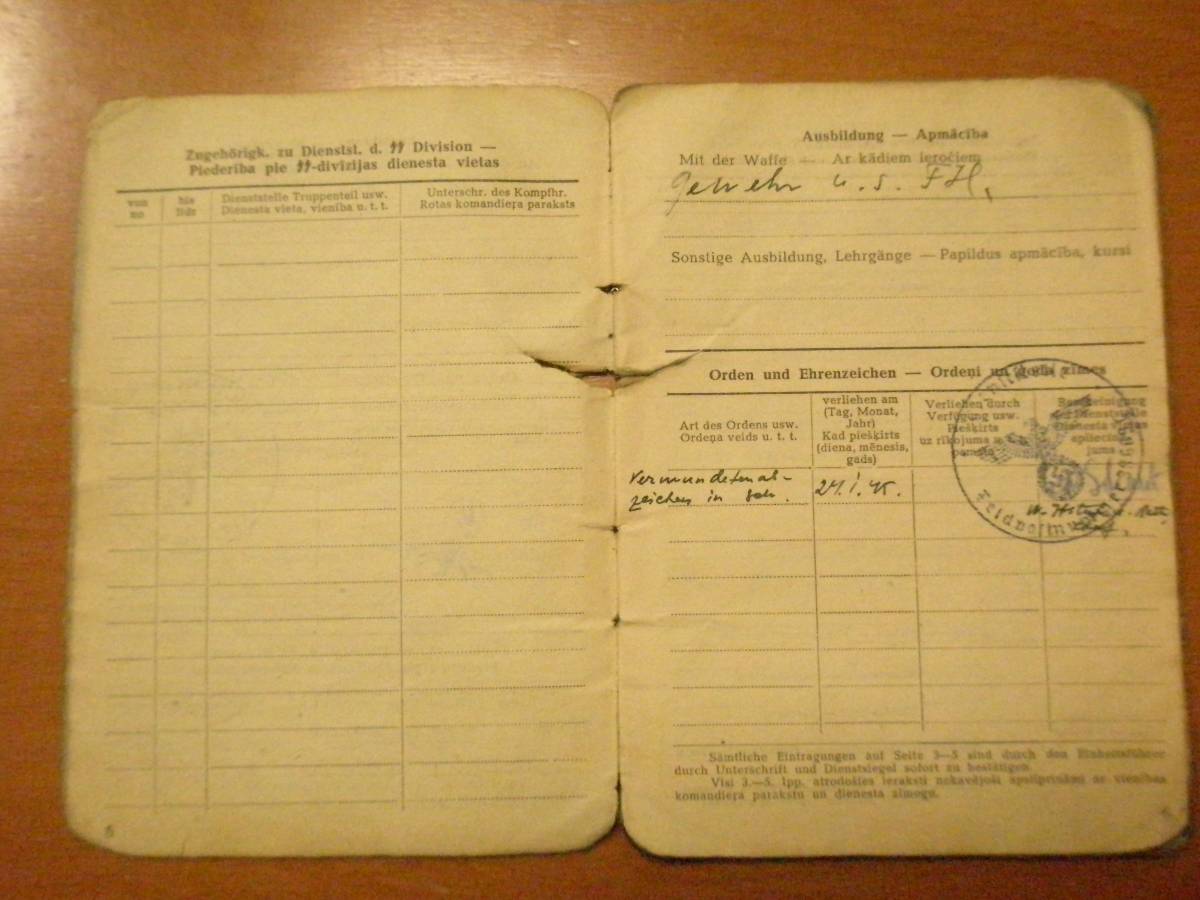 Zugehörigk. zu Dienstst. d. ᛋᛋ Division —
Piederība pie ᛋᛋ-divizijas dienesta vietas
von
no
bis
līdz
Dienststelle Truppenteil usw.
Dienesta vieta, vienība u. t. t.
Unterschr. des Kompfhr.
Rotas komandieŗa paraksts
Ausbildung — Apmācība
Mit der Waffe — Ar kādiem ieročiem
Gewehr
Sonstige Ausbildung, Lehrgänge — Papildus apmācība, kursi
Orden und Ehrenzeichen — Ordeņi un goda zīmes
Art des Ordens usw.
Ordeņa veids u. t. t.
verliehen am
(Tag, Monat,
Jahr)
Kad piešķirts
(diena, mēnesis,
gads)
Verliehen durch
Verfügung usw.
Piešķirts
uz rīkojuma
Bescheinigung
der Dienststelle
Dienesta vietas
Verwundetenab-
zeichen in
Feldpostnummer
Sämtliche Eintragungen auf Seite 3—5 sind durch den Einheitsführer
durch Unterschrift und Dienstsiegel sofort zu bestätigen.
Visi 3.—5. lpp. atrodošies ieraksti nekavējoši apstiprināmi ar vienības
komandieŗa parakstu un dienesta zīmogu.